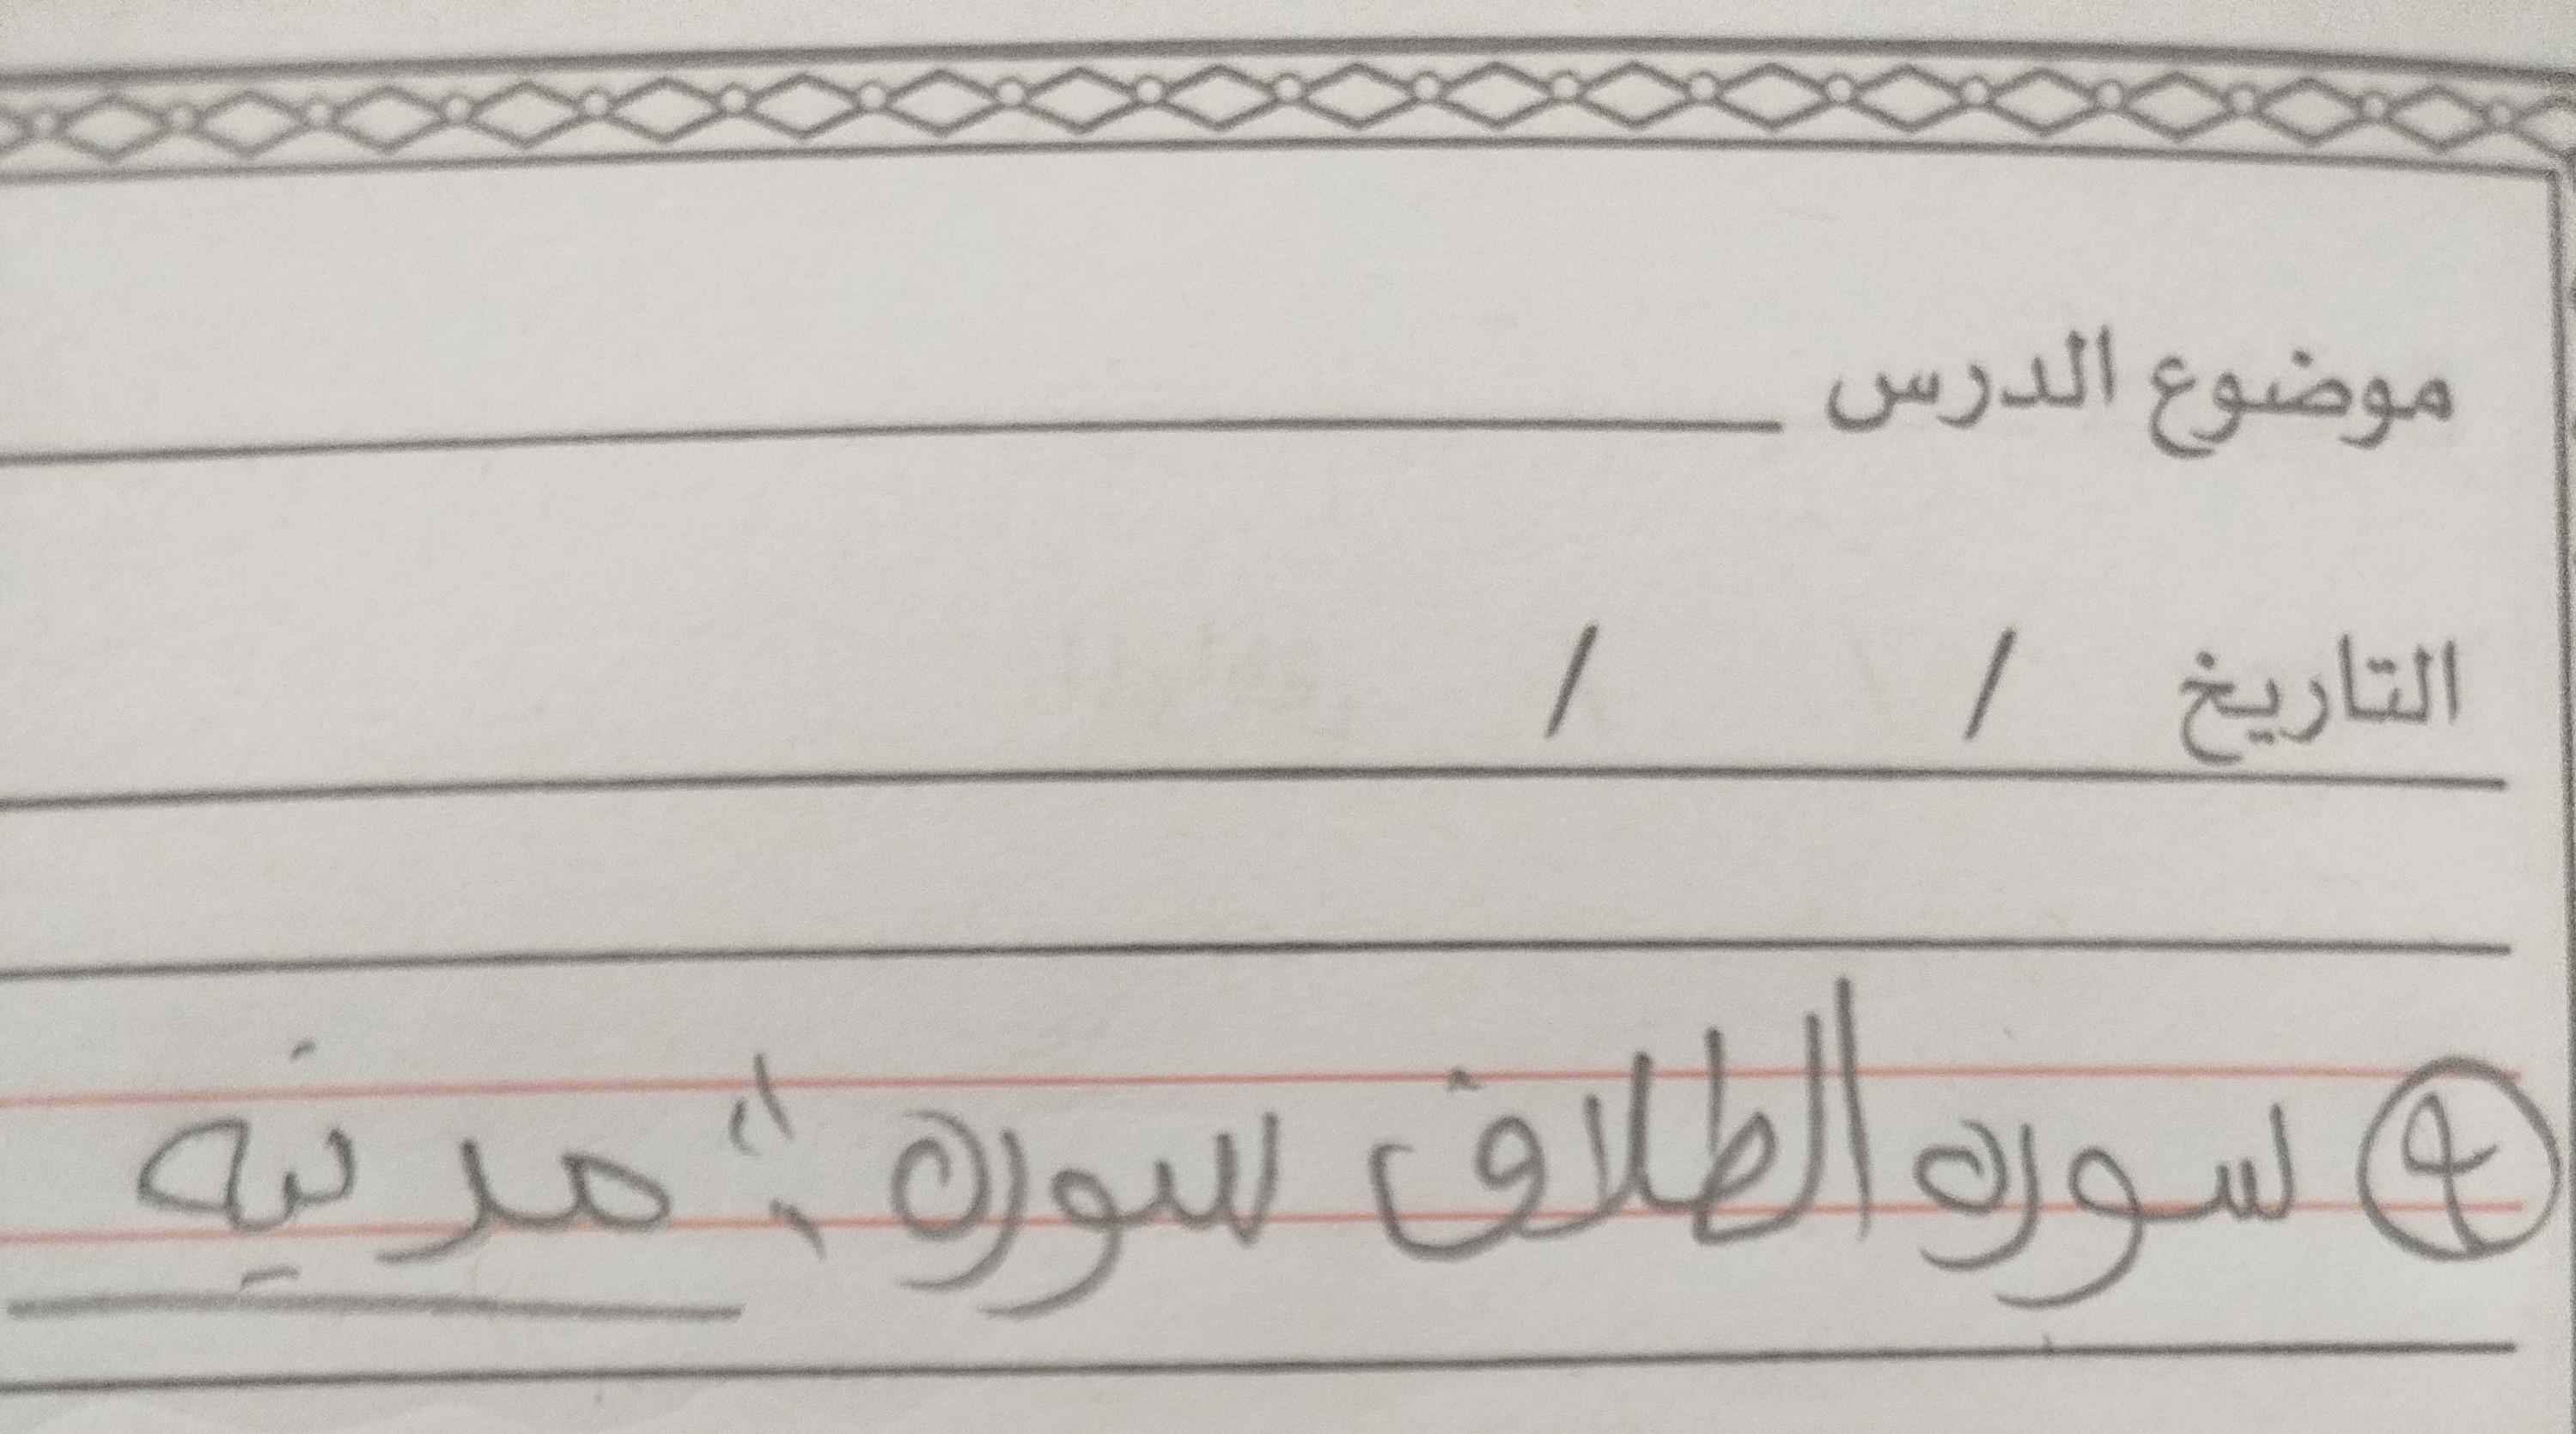 موضوع الدرس
التاريخ / /
سوره الطلاق سوره : مدنيه